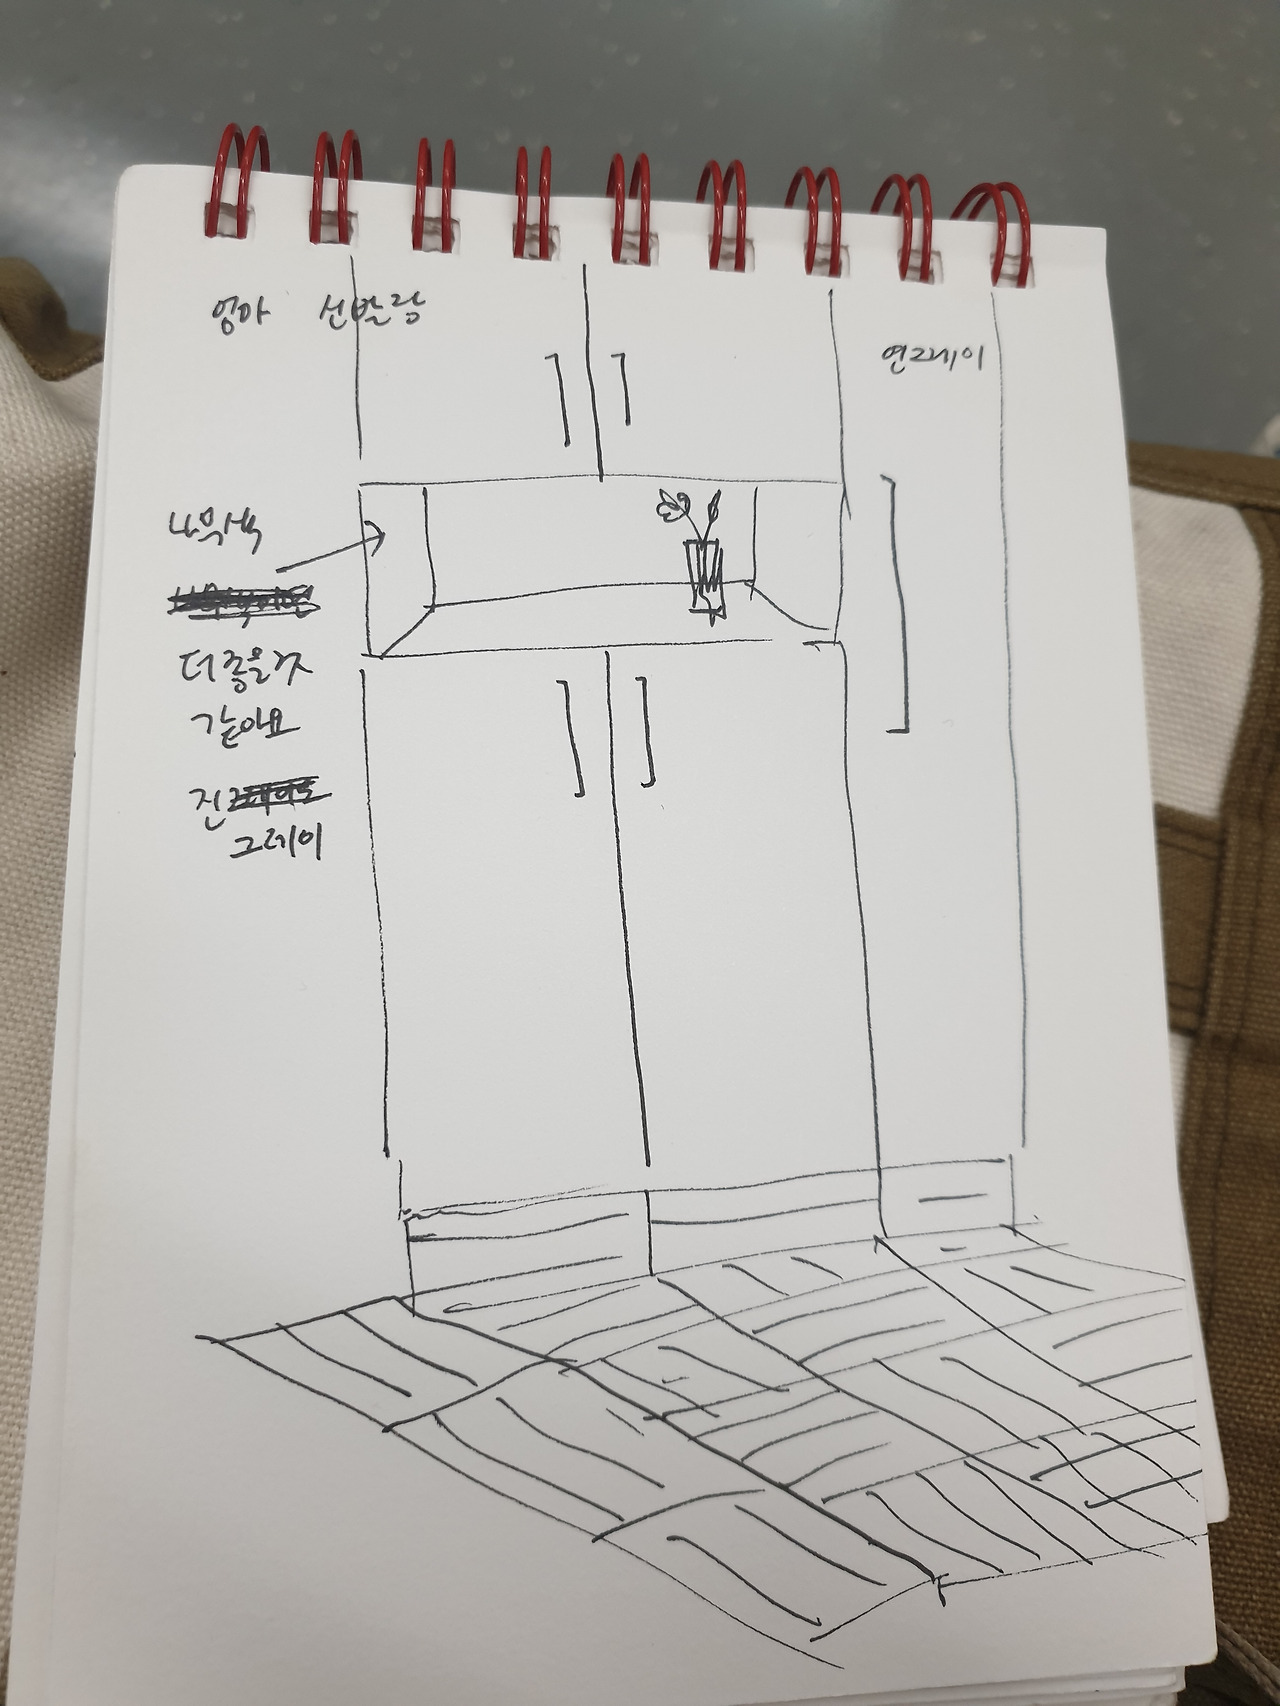 엄마 신발장
연그레이
나무색
더 좋을것
같아요
진
그레이